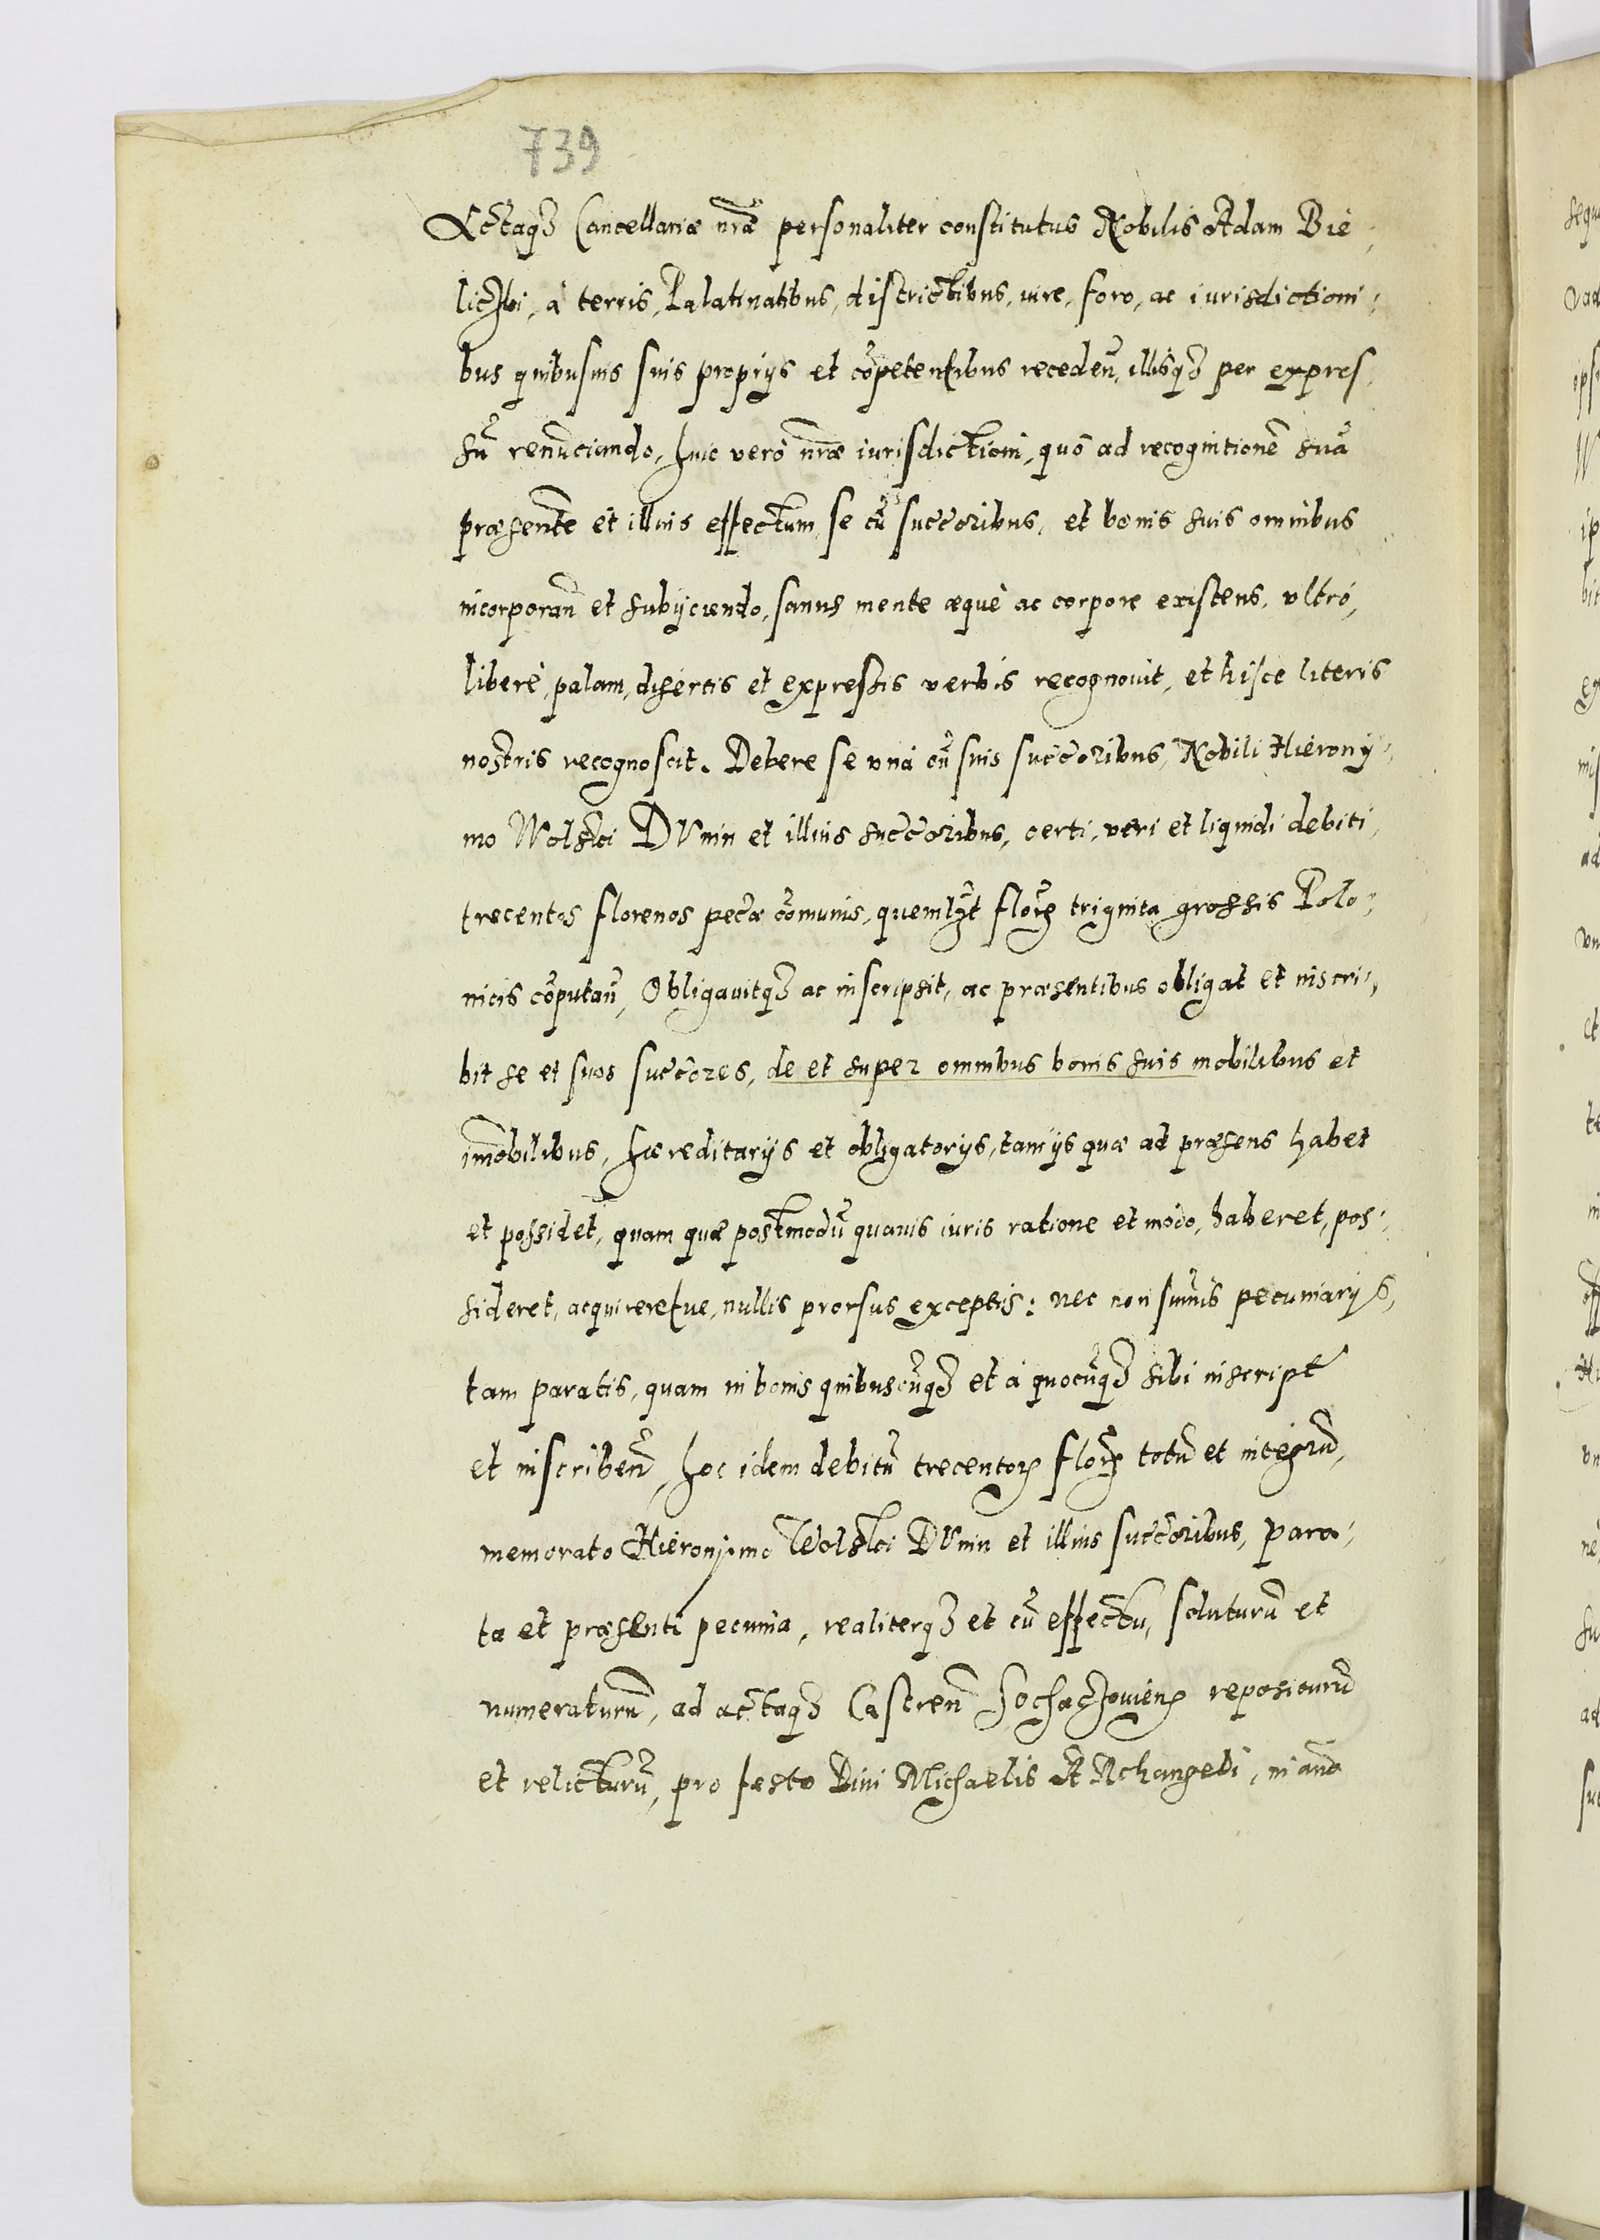 739
Actaq3 Cancellariæ nr̃æ personaliter constitutus Nobilis Adam Bie,
liczki, à terris, Palatinatibus, districtibus, iure, foro, ac iurisdictioni,
bus quibusuis suis proprijs et cõpetentibus recedeñ, illisq3 per expres,
sũ renũciando, huic verò nr̃æ iurisdictioni, quò ad recognitionẽ suã
præsentẽ et illius effectum, se cũ succ̃oribus, et bonis suis omnibus
incorporañ et subijciendo, sanus mente æquè ac corpore existens, vltrò,
liberè, palam, disertis et expressis verbis recognouit, et hisce literis
nostris recognoscit. Debere se vnà cũ suis succ̃oribus, Nobili Hierony,
mo Wolski DVnin et illius succ̃oribus, certi, veri et liquidi debiti,
trecentos florenos pec̃æ cõmunis, quemlꝫt flor̃ triginta grossis Polo,
nicis cõputañ, Obligauitq3 ac inscripsit, ac præsentibus obligat et inscri,
bit se et suos succ̃ores, de et super omnibus bonis suis mobilibus et
im̃obilibus, hæreditarijs et obligatorijs, tam ijs quæ ad præsens habet
et possidet, quam quæ postmodũ quauis iuris ratione et modo, haberet, pos,
sideret, acquireretue, nullis prorsus exceptis: nec non sum̃is pecuniarijs,
tam paratis, quam in bonis quibuscũq3 et à quocũq3 sibi inscript̃
et inscribeñ, hoc idem debitũ trecentorꝫ florꝫ totũ et integrũ,
memorato Hieronymo Wolski DVnin et illius succ̃oribus, para,
ta et præsenti pecunia, realiterq3 et cũ effectu, soluturũ et
numeraturũ, ad actaq3 Castreñ Sochaczouieñ repositurũ
et relicturũ, pro festo Diui Michaelis ARchangeli, in anno